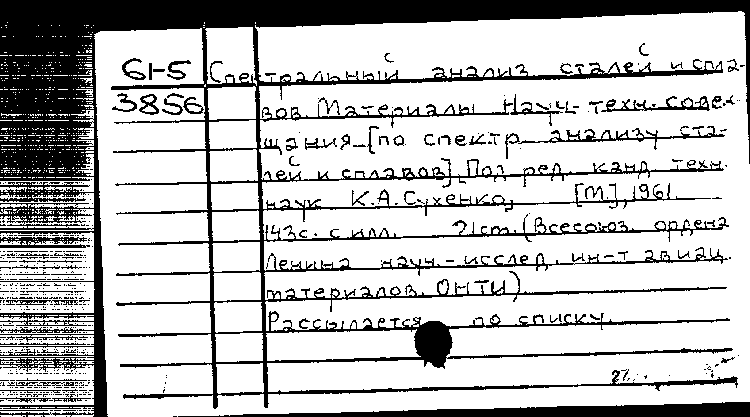 61-5 Спектральный анализ сталей и спла-
3856 вов. Материалы Науч.-техн. совещ-
щания [по спектр. анализу ста-
лей и сплавов]. Под ред. канд. техн.
наук К.А.Сухенко, [М.], 1961.
143с. с илл. 21см. (Всесоюз. ордена
Ленина науч.-исслед. ин-т авиац.
материалов. ОНТИ)
Рассылается по списку.